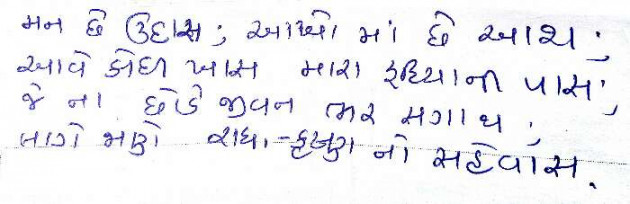 મન છે ઉદાસ; આંખો માં છે આશ;
આવે કોઈ ખાસ મારા હૃદયાની પાસ;
જે ના છોડે જીવન ભર સગાથ;
લાગે જાણે રાધા-કૃષ્ણ નો સહેવાસ.